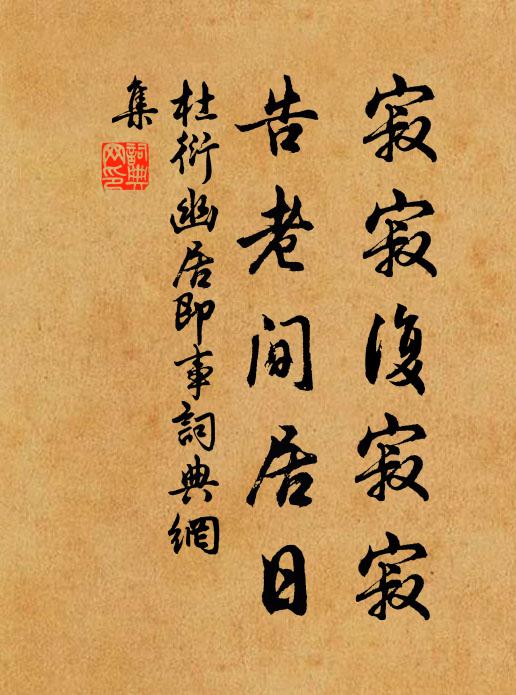 寂寂復寂寂
告老閒居日
杜衍幽居即事詞典網
集
詞典
网印